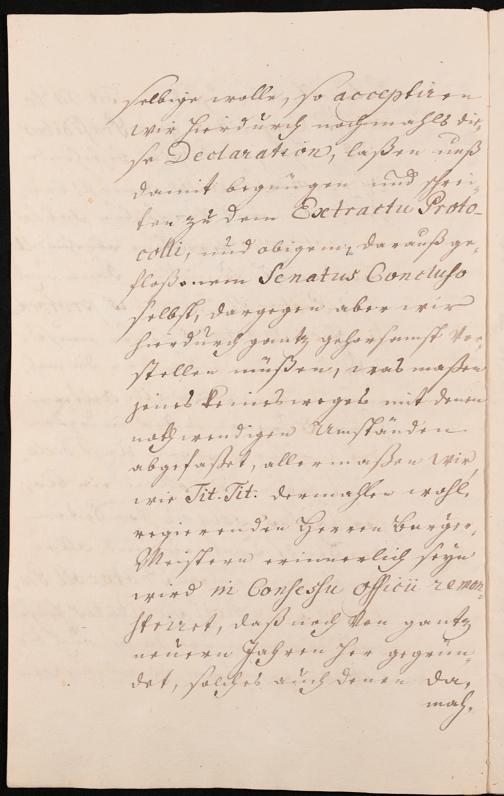 selbige wolle, so acceptiren
wir hierdurch nochmahls die-
se Declaration, laßen unß
damit begnügen und schrei-
ten zu dem Extractu Proto-
colli, und obigem, darauß ge-
floßenem Senatus Concluso
selbst, dargegen aber wir
hierdurch gantz gehorsamst vor-
stellen müßen, was maßen
jenes keinesweges mit denen
nothwendigen Umständen
abgefaßet, allermaßen wir,
wie Tit. Tit. dermahlen wohl-
regierenden Herren Burger-
Meistern erinnerlich seyn
wird in Consessu officii remon-
striret, daß noch von gantz
neuern Jahren her gegrün-
det, solches auch denen da-
mah-